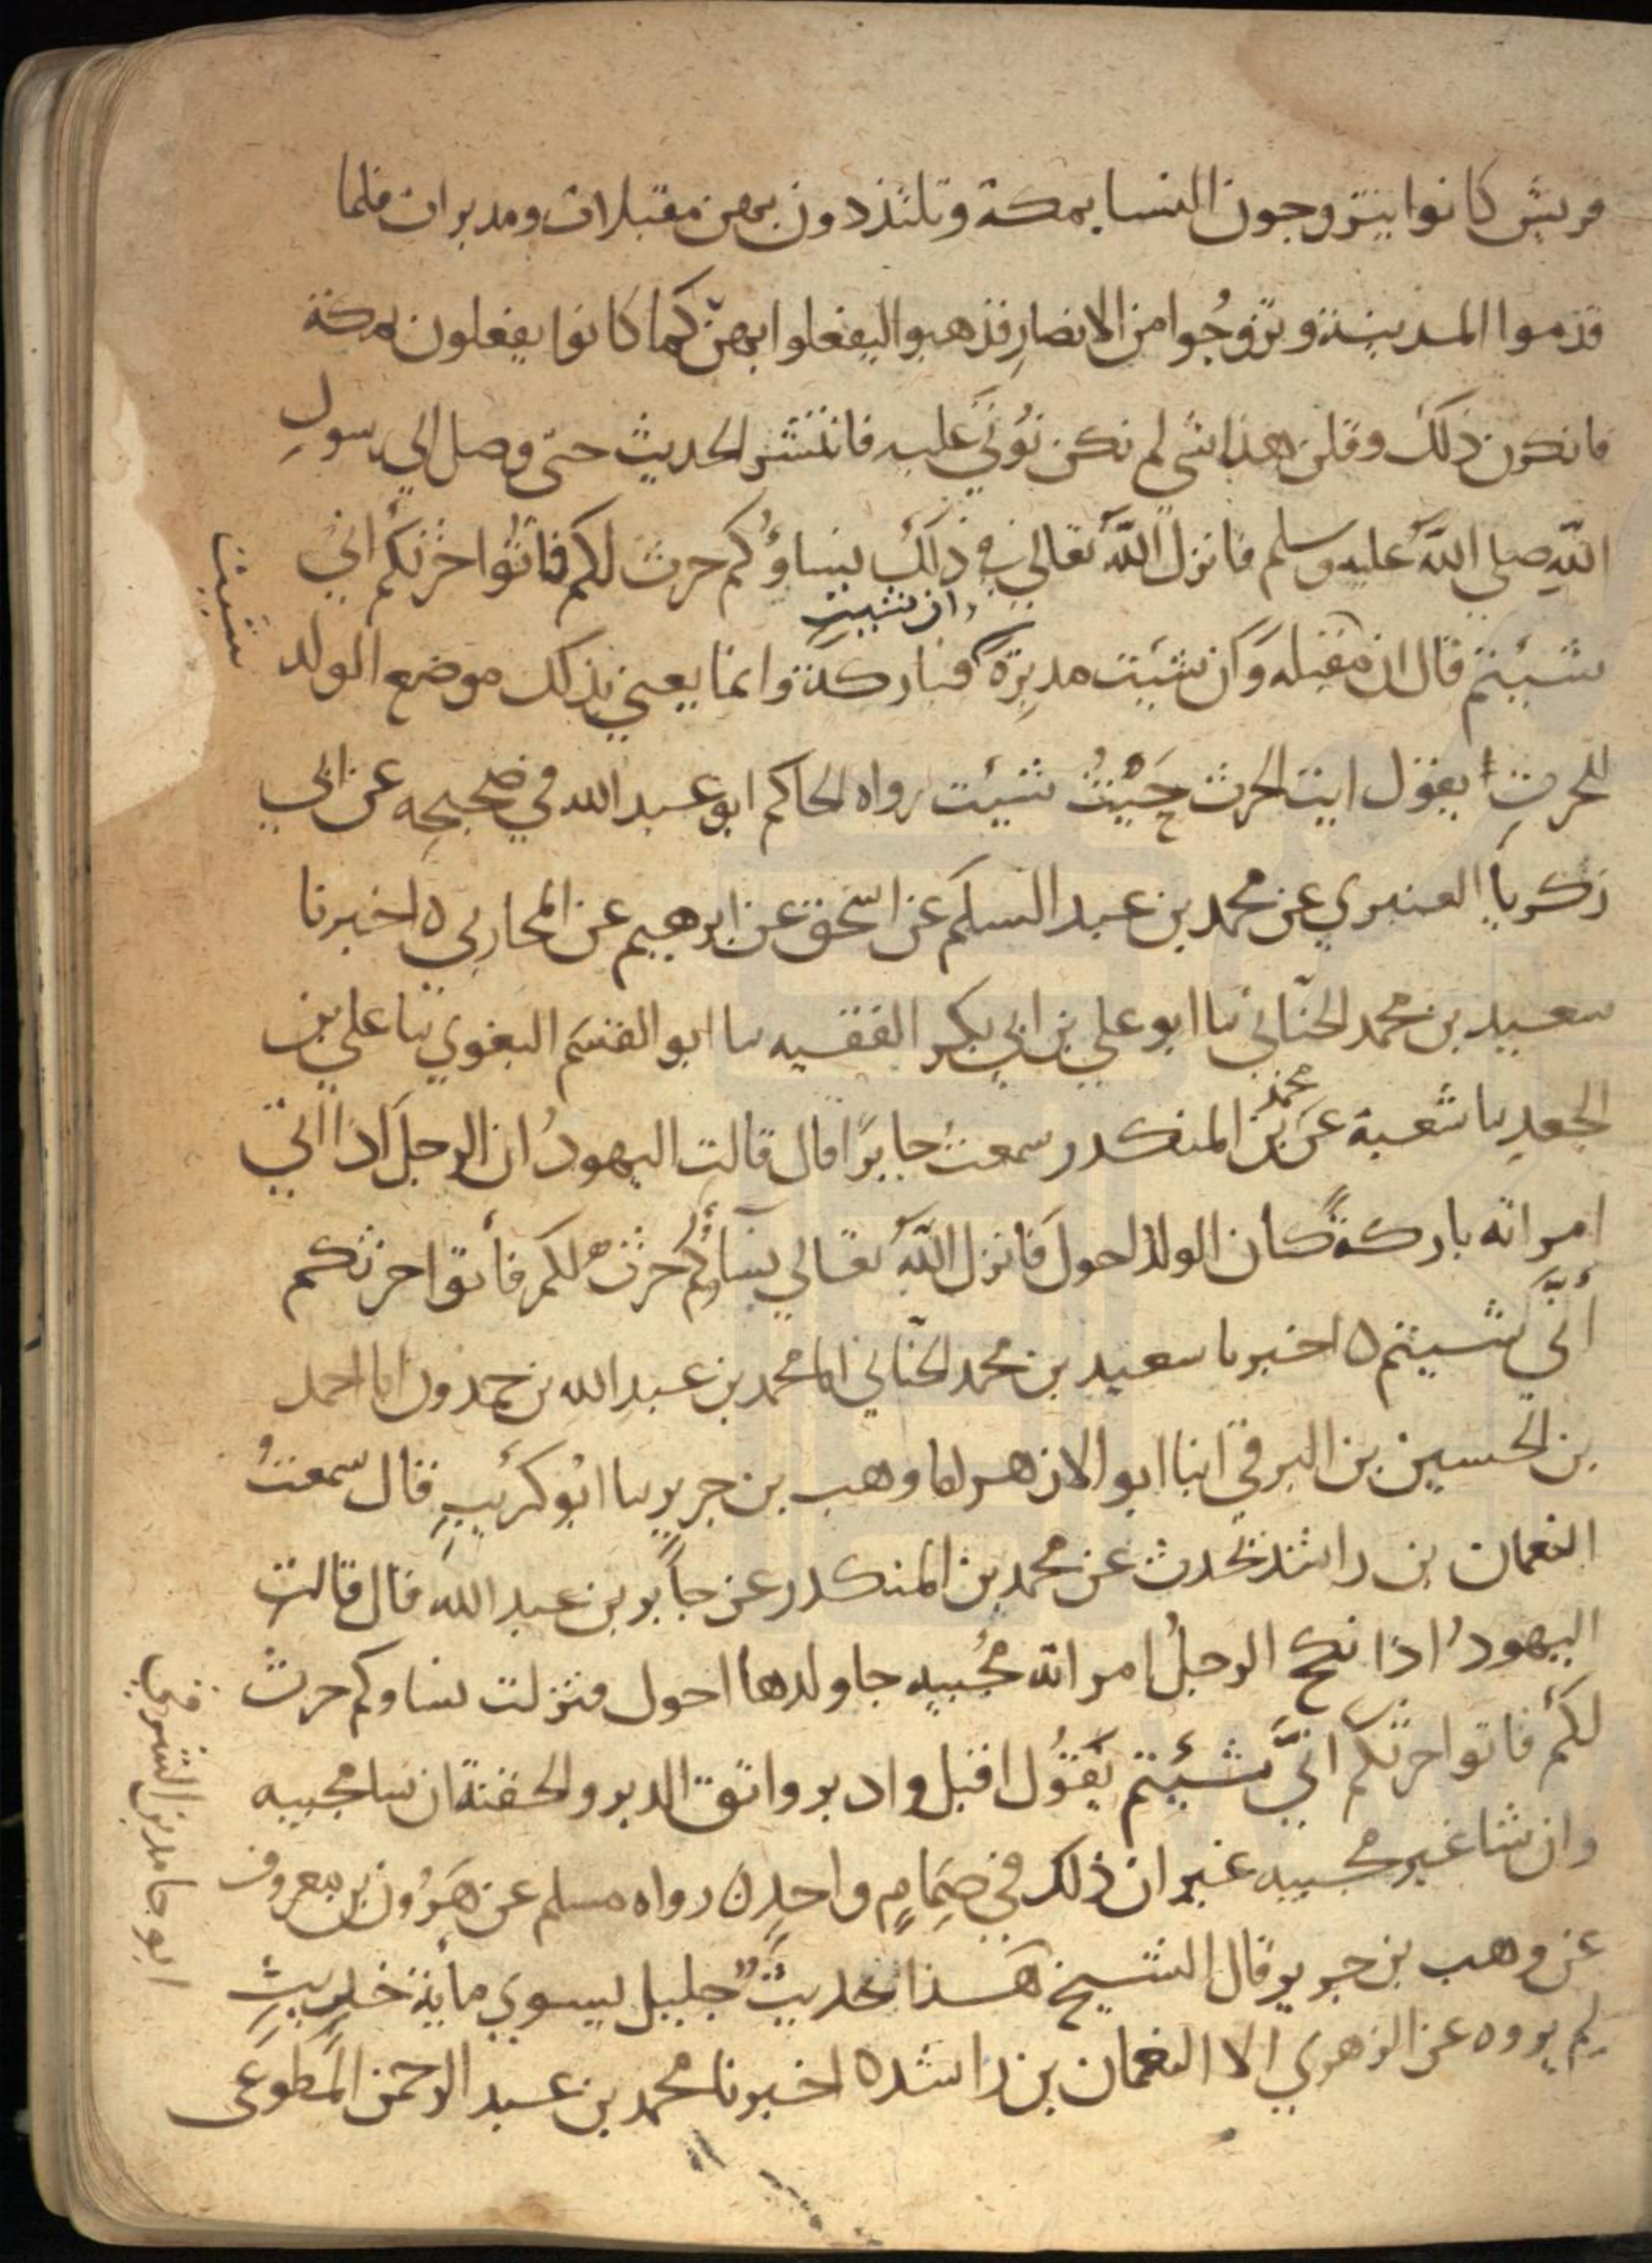 قريش كانوا يتزوجون النسا بمكة وتلتذذون بهن مقبلات ومدبرات فلما
قدموا المدينة وتزوجُوا من الانصارِ فذهبوا ليفعلوا بهنّ كما كانوا يفعلون بمكة
فانكرن ذلك وقلن هذا شي لم نكن نُوتَي عليه فانتشر الحديث حتى وصل الي رسولِ
اللهِ صلي اللهُ عليه وسلم فانزل اللهُ تعالي في ذلك نساؤُكم حرث لكم فاتُوا حرثكُم انَّي
شئتم قال ان مقبله وَان شئت مدبِرَة وان شيت فباركة وانما يعني بذلك موضع الولد
شيت
للحرثِ يقول ايت الحرث حَيْثُ شئت رواه الحاكم ابو عبد الله في صحيحه عن ابي
زكريا العنبري عن محمد بن عبد السلم عن اسحق عن ابرهيم عن المحاربي ه اخبرنا
سعيد بن محمد الحنّاني نا ابو علي بن ابي بكر الفقيه نا ابو القسم البغوي نا علي بن
الجعدِ نا شعبة عن محمد بن المنكدر سمعت جابرًا قال قالت اليهودُ ان الرجل اذا اتي
امراته باركةً كان الولد احول فانزل اللهُ تعالي نساؤُكم حرث لكم فأتوا حرثكم
أنَّي شيتم ه اخبرنا سعيد بن محمد الحنّاني انا محمد بن عبد الله بن حمدون انا احمد
بن الحسين بن البرقي انبا ابو الازهر انا وهب بن جرير نا ابو كرَيبٍ قال سمعتُ
النعمان بن راشد تحدث عن محمد بن المنكدر عن جابر بن عبد الله قال قالت
اليهودُ اذا نكح الرجلُ امراته مُجبيه جا ولدها احول فنزلت نساوكم حرث
لكم فاتوا حرثكم انَّي شئتم يَقُول اقبل وادبر واتق الدبر والحفنة ان شا مجبيه
وان شا غير مجبيه غير ان ذلك في صِمَامٍ واحدٍ ه رواه مسلم عن هَرُون بن معروف
عن وهب بن جرير قال الشيخ هذا حديثٌ جليل يسوي مأية حديثٍ
لم يروه عن الزهري الا النعمان بن راشد ه اخبرنا محمد بن عبد الرحمن المطوعي
ابو حامد بن الشرقي